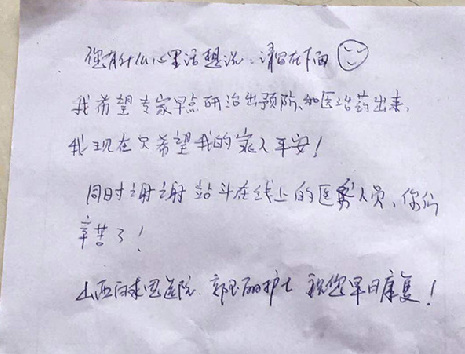 您有什么心里话想说，请写在下面
我希望专家早点研治出预防和医治药出来，
我现在只希望我的家人平安！
同时谢谢站斗在线上的医务人员，你们
辛苦了！
山西白求恩医院 护士 祝您早日康复！